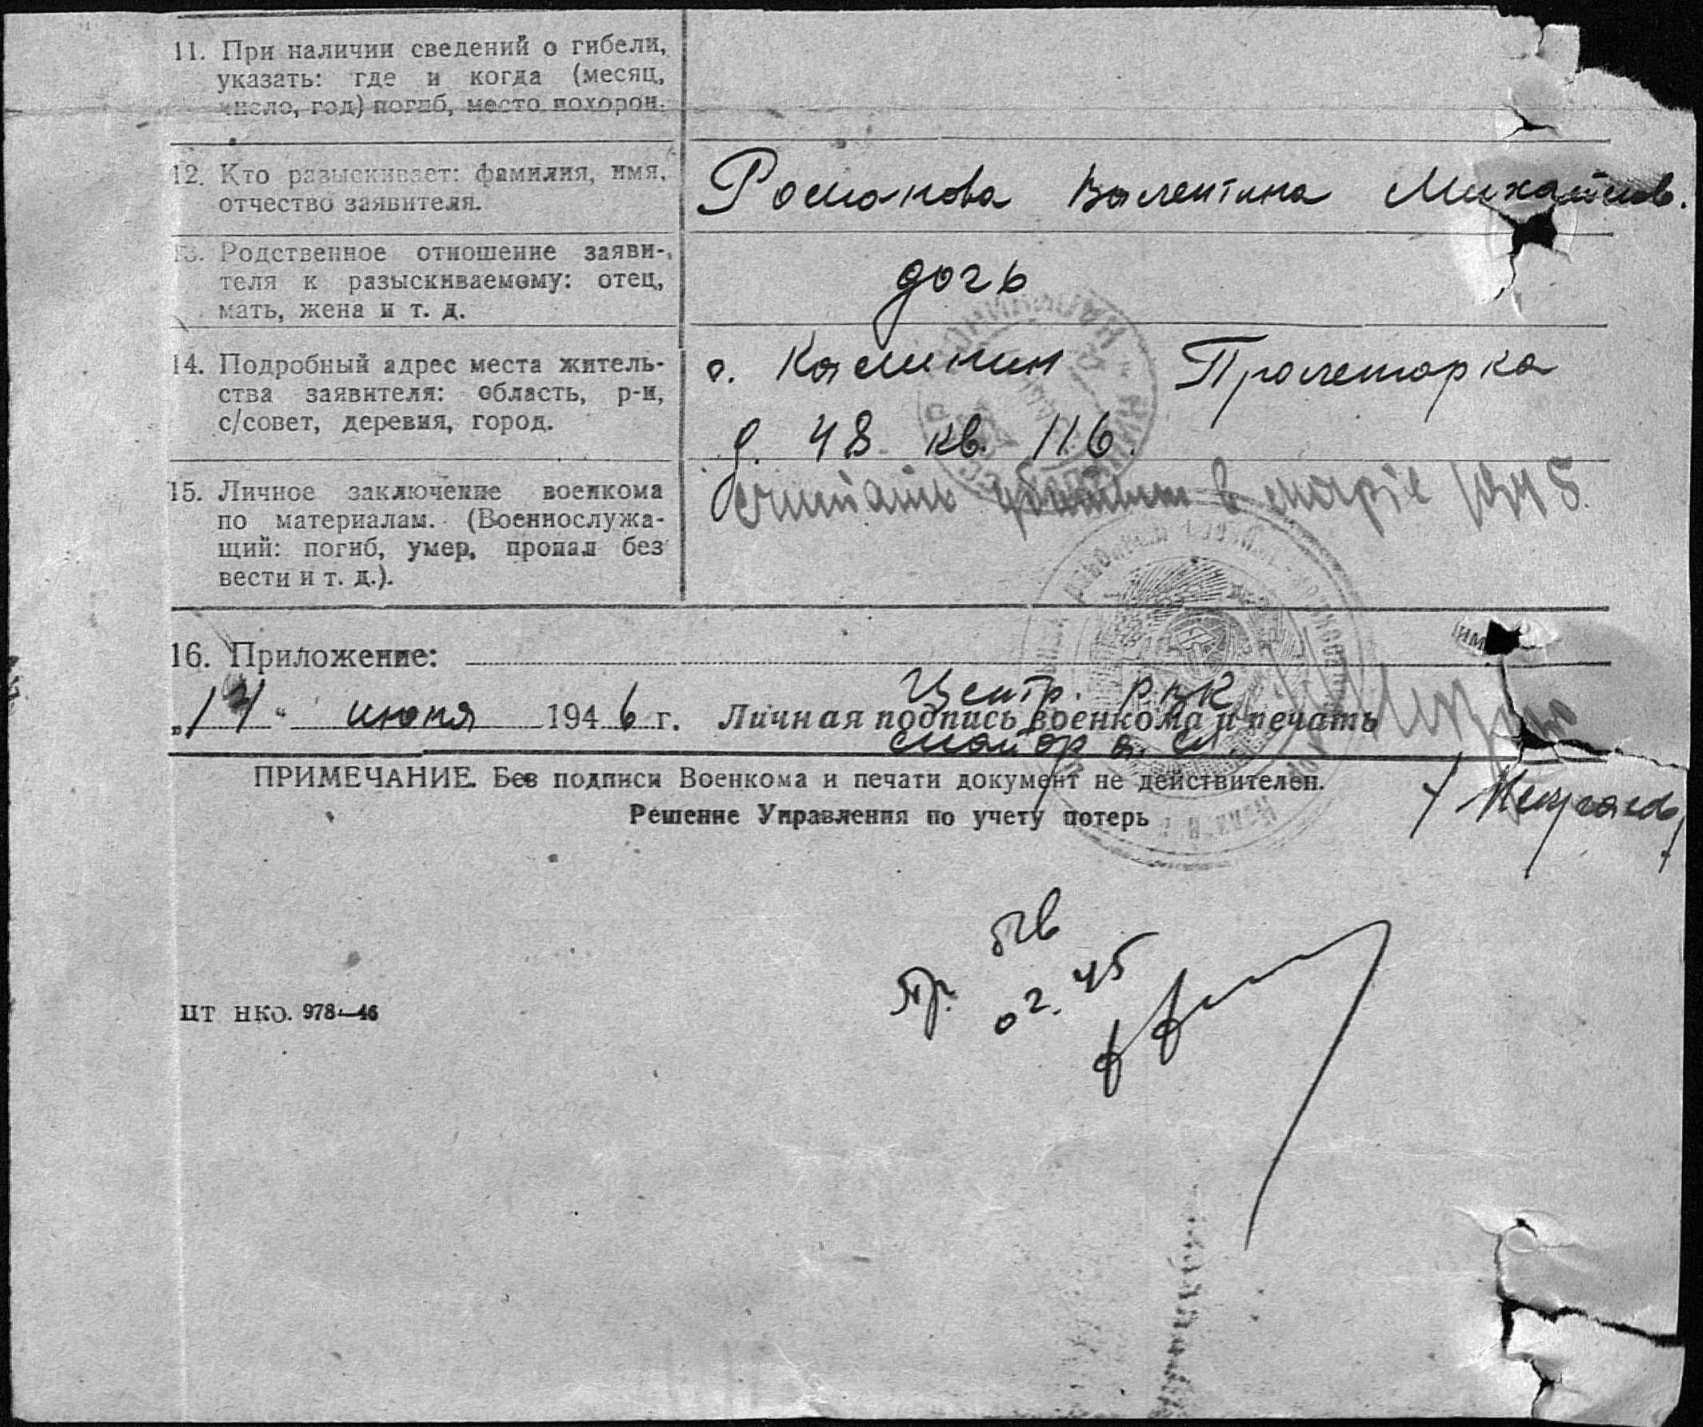 11. При наличии сведений о гибели,
указать: где и когда (месяц,
число, год) погиб, место похорон.
12. Кто разыскивает: фамилия, имя,
отчество заявителя.
Романова Валентина Михайлов.
13. Родственное отношение заяви-
теля к разыскиваемому: отец,
мать, жена и т. д.
дочь
14. Подробный адрес места житель-
ства заявителя: область, р-н,
с/совет, деревня, город.
г. Калинин Пролетарка
д. 48 кв. 116.
15. Личное заключение военкома
по материалам. (Военнослужа-
щий: погиб, умер, пропал без
вести и т. д.).
Считать в марте 1945.
16. Приложение:
„14“ июня 1946 г. Личная подпись военкома и печать
Центр. РВК
майор
ПРИМЕЧАНИЕ. Без подписи Военкома и печати документ не действителен.
Решение Управления по учету потерь
пр. б/в
02.45
ЦТ НКО. 978—46